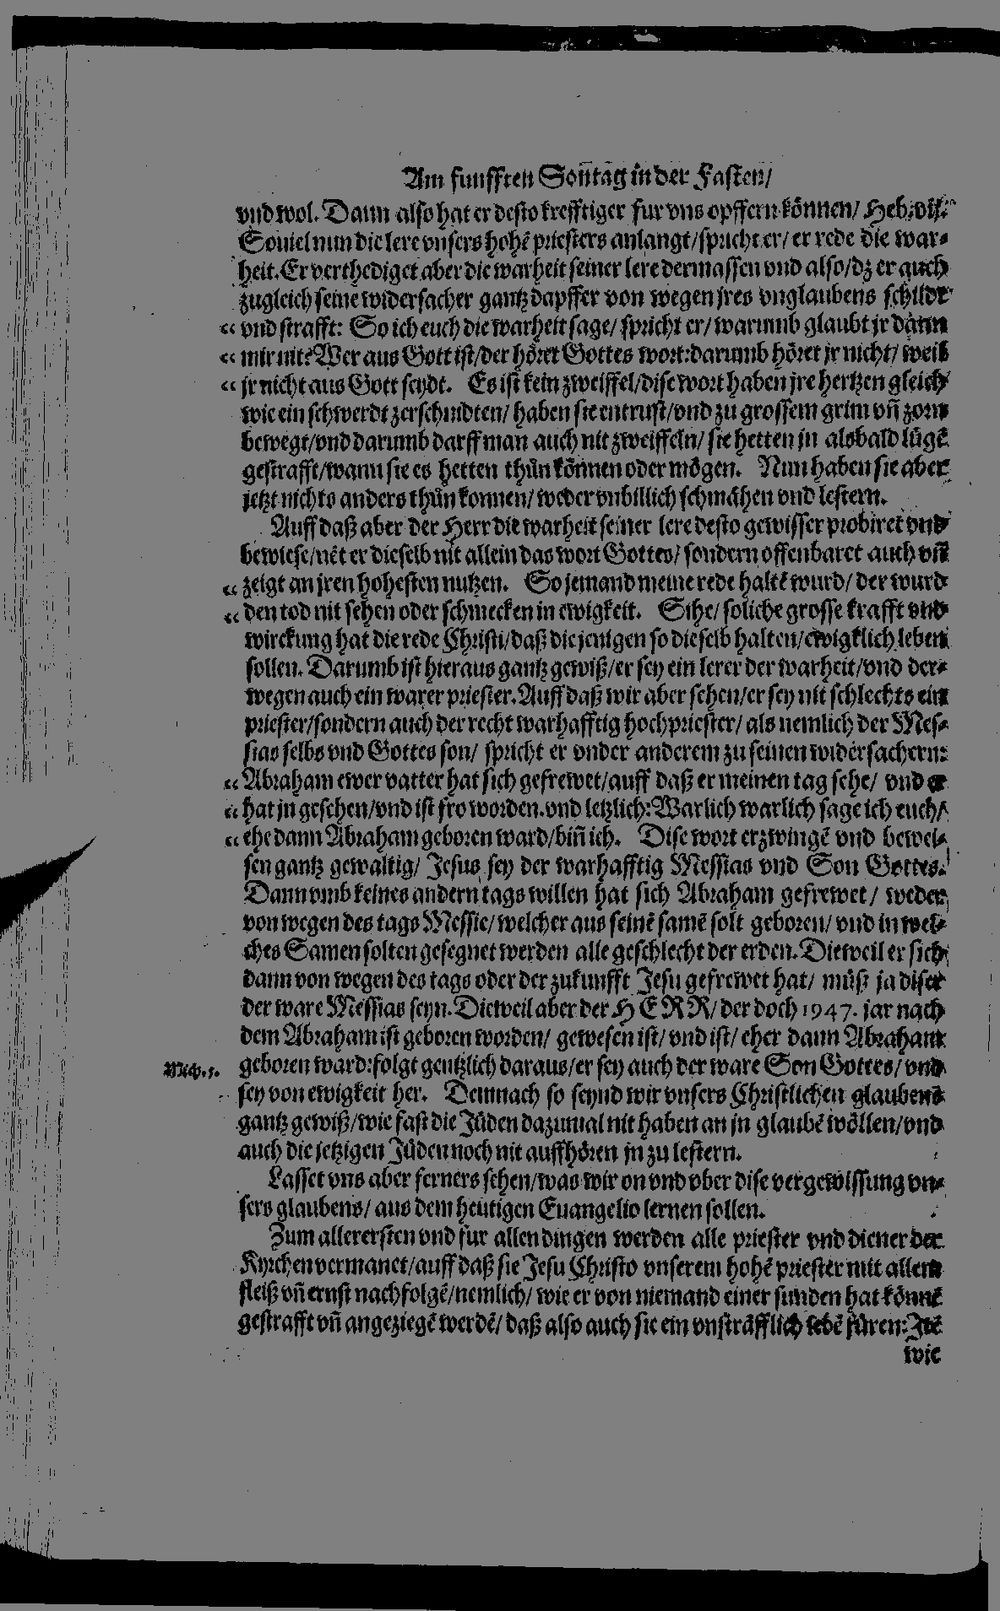 Am funfften Soñtag in der Fasten/
vnd wol. Dann also hat er desto krefftiger fur vns opffern können/ Heb. vij.
Souiel nun die lere vnsers hohẽ priesters anlangt/ spricht er/ er rede die war-
heit. Er verthediget aber die warheit seiner lere dermassen vnd also/ dz er auch
zugleich seine widersacher gantz dapffer von wegen jres vnglaubens schildt
“ vnd strafft: So ich euch die warheit sage/ spricht er/ warumb glaubt jr dann
“ mir nit? Wer aus Gott ist/ der höret Gottes wort: darumb höret jr nicht/ weil
“ jr nicht aus Gott seydt. Es ist kein zweiffel/ dise wort haben jre hertzen gleich
wie ein schwerdt zerschnidten/ haben sie entrust/ vnd zu grossem grim vñ zorn
bewegt/ vnd darumb darff man auch nit zweiffeln/ sie hetten jn alsbald lügẽ
gestrafft/ wann sie es hetten thůn können oder mögen. Nun haben sie aber
jetzt nichts anders thůn konnen/ weder vnbillich schmähen vnd lestern.
Auff daß aber der Herr die warheit seiner lere desto gewisser probiret vnd
bewiese/ nẽt er dieselb nit allein das wort Gottes/ sondern offenbaret auch vñ
“ zeigt an jren hohesten nutzen. So jemand meine rede haltẽ wurd/ der wurd
“ den tod nit sehen oder schmecken in ewigkeit. Sihe/ soliche grosse krafft vnd
wirckung hat die rede Christi/ daß diejenigen so dieselb halten/ ewigklich leben
sollen. Darumb ist hieraus gantz gewiß/ er sey ein lerer der warheit/ vnd der-
wegen auch ein warer priester. Auff daß wir aber sehen/ er sey nit schlechts ein
priester/ sondern auch der recht warhafftig hochpriester/ als nemlich der Mes-
sias selbs vnd Gottes son/ spricht er vnder anderem zu seinen widersachern:
“ Abraham ewer vatter hat sich gefrewet/ auff daß er meinen tag sehe/ vnd er
“ hat jn gesehen/ vnd ist fro worden. vnd letzlich: Warlich warlich sage ich euch/
“ ehe dann Abraham geboren ward/ biñ ich. Dise wort erzwingẽ vnd bewei-
sen gantz gewaltig/ Jesus sey der warhafftig Messias vnd Son Gottes.
Dann vmb keines andern tags willen hat sich Abraham gefrewet/ weder
von wegen des tags Messie/ welcher aus seinẽ samẽ solt geboren/ vnd in wel-
ches Samen solten gesegnet werden alle geschlecht der erden. Dieweil er sich
dann von wegen des tags oder der zukunfft Jesu gefrewet hat/ můß ja diser
der ware Messias seyn. Dieweil aber der HERR/ der doch 1947. jar nach
dem Abraham ist geboren worden/ gewesen ist/ vnd ist/ eher dann Abraham
Mich. 5. geboren ward: folgt gentzlich daraus/ er sey auch der ware Son Gottes/ vnd
sey von ewigkeit her. Demnach so seynd wir vnsers Christlichen glaubens
gantz gewiß/ wie fast die Jüden dazumal nit haben an jn glaubẽ wöllen/ vnd
auch die jetzigen Jüden noch nit auffhören jn zu lestern.
Lasset vns aber ferners sehen/ was wir on vnd vber dise vergewissung vn-
sers glaubens/ aus dem heutigen Euangelio lernen sollen.
Zum allerersten vnd für allen dingen werden alle priester vnd diener der
Kyrchen vermanet/ auff daß sie Jesu Christo vnserem hohẽ priester mit allem
fleiß vñ ernst nachfolgẽ/ nemlich/ wie er von niemand einer sunden hat könnẽ
gestrafft vñ angeziegẽ werdẽ/ daß also auch sie ein vnsträfflich lebẽ füren: Itẽ
wie